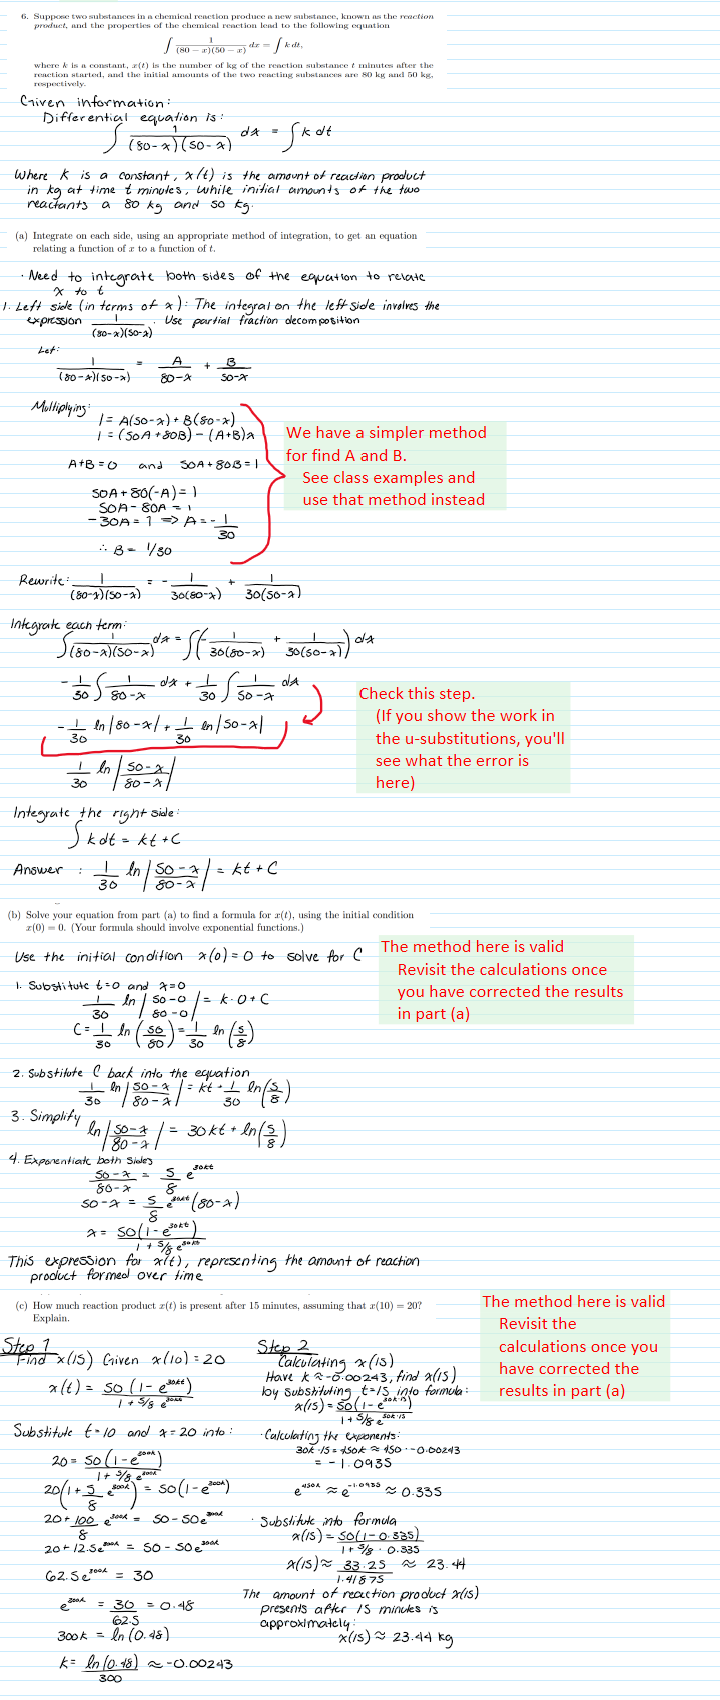 6. Suppose two substances in a chemical reaction produce a new substance, known as the reaction
product, and the properties of the chemical reaction lead to the following equation
∫ 1/((80 − x)(50 − x)) dx = ∫ k dt,
where k is a constant, x(t) is the number of kg of the reaction substance t minutes after the
reaction started, and the initial amounts of the two reacting substances are 80 kg and 50 kg,
respectively.
Given information:
Differential equation is:
∫ 1/((80-x)(50-x)) dx = ∫ k dt
Where k is a constant, x(t) is the amount of reaction product
in kg at time t minutes, while initial amounts of the two
reactants a 80 kg and 50 kg.
(a) Integrate on each side, using an appropriate method of integration, to get an equation
relating a function of x to a function of t.
· Need to integrate both sides of the equation to relate
x to t
1. Left side (in terms of x): The integral on the left side involves the
expression 1/((80-x)(50-x)). Use partial fraction decomposition
Let:
1/((80-x)(50-x)) = A/(80-x) + B/(50-x)
Multiplying:
1 = A(50-x) + B(80-x)
1 = (50A + 80B) - (A+B)x
We have a simpler method
for find A and B.
See class examples and
use that method instead
A+B=0 and 50A+80B=1
50A+80(-A)=1
50A-80A=1
-30A=1 => A=-1/30
∴ B= 1/30
Rewrite: 1/((80-x)(50-x)) = -1/(30(80-x)) + 1/(30(50-x))
Integrate each term:
∫ 1/((80-x)(50-x)) dx = ∫ (-1/(30(80-x)) + 1/(30(50-x))) dx
-1/30 ∫ 1/(80-x) dx + 1/30 ∫ 1/(50-x) dx
-1/30 ln|80-x| + 1/30 ln|50-x|
1/30 ln|(50-x)/(80-x)|
Check this step.
(If you show the work in
the u-substitutions, you'll
see what the error is
here)
Integrate the right side:
∫ kdt = kt +C
Answer : 1/30 ln|(50-x)/(80-x)| = kt + C
(b) Solve your equation from part (a) to find a formula for x(t), using the initial condition
x(0) = 0. (Your formula should involve exponential functions.)
Use the initial condition x(0)=0 to solve for C
The method here is valid
Revisit the calculations once
you have corrected the results
in part (a)
1. Substitute t=0 and x=0
1/30 ln|(50-0)/(80-0)| = k·0+C
C= 1/30 ln(50/80) = 1/30 ln(5/8)
2. Substitute C back into the equation
1/30 ln|(50-x)/(80-x)| = kt + 1/30 ln(5/8)
3. Simplify
ln|(50-x)/(80-x)| = 30kt + ln(5/8)
4. Exponentiate both sides
(50-x)/(80-x) = 5/8 e^30kt
50-x = 5/8 e^30kt (80-x)
x = 50(1-e^30kt)/(1+5/8 e^30kt)
This expression for x(t), representing the amount of reaction
product formed over time
(c) How much reaction product x(t) is present after 15 minutes, assuming that x(10) = 20?
Explain.
The method here is valid
Revisit the
calculations once you
have corrected the
results in part (a)
Step 1
Find x(15) Given x(10)=20
x(t) = 50(1-e^30kt)/(1+5/8 e^30kt)
Substitute t=10 and x=20 into:
20 = 50(1-e^300k)/(1+5/8 e^300k)
20(1+5/8 e^300k) = 50(1-e^300k)
20+100/8 e^300k = 50-50e^300k
20+12.5e^300k = 50-50e^300k
62.5e^300k = 30
e^300k = 30/62.5 = 0.48
300k = ln(0.48)
k= ln(0.48)/300 ≈ -0.00243
Step 2
Calculating x(15)
Have k≈-0.00243, find x(15)
by substituting t=15 into formula:
x(15)= 50(1-e^30k·15)/(1+5/8 e^30k·15)
· Calculating the exponents:
30k·15=450k ≈ 450·-0.00243
= -1.0935
e^450k ≈ e^-1.0935 ≈ 0.335
· Substitute into formula
x(15)= 50(1-0.335)/(1+5/8·0.335)
x(15)≈ 33.25/1.41875 ≈ 23.44
The amount of reaction product x(15)
presents after 15 minutes is
approximately:
x(15)≈ 23.44 kg